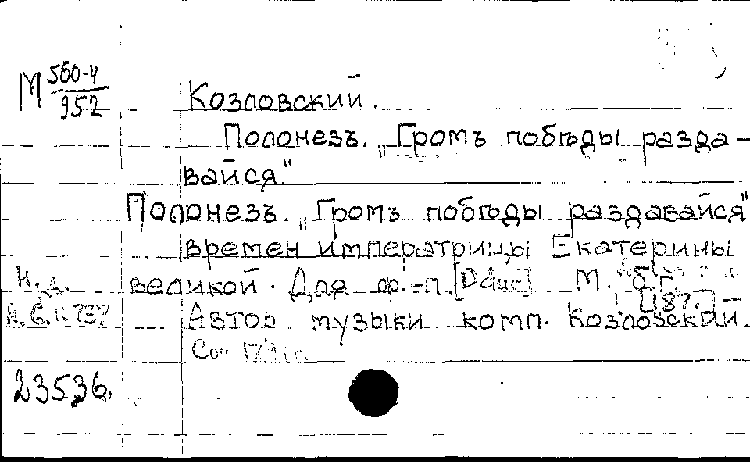 М 560-4/952
Козловский.
Полонезъ. „Громъ побѣды разда-
вайся"
Полонезъ. „Громъ побѣды раздавайся"
времен императрицы Екатерины
великой. Для ф.-п. [D dur] М. б. г.
[187.]
Автор музыки комп. Козловский.
23536.